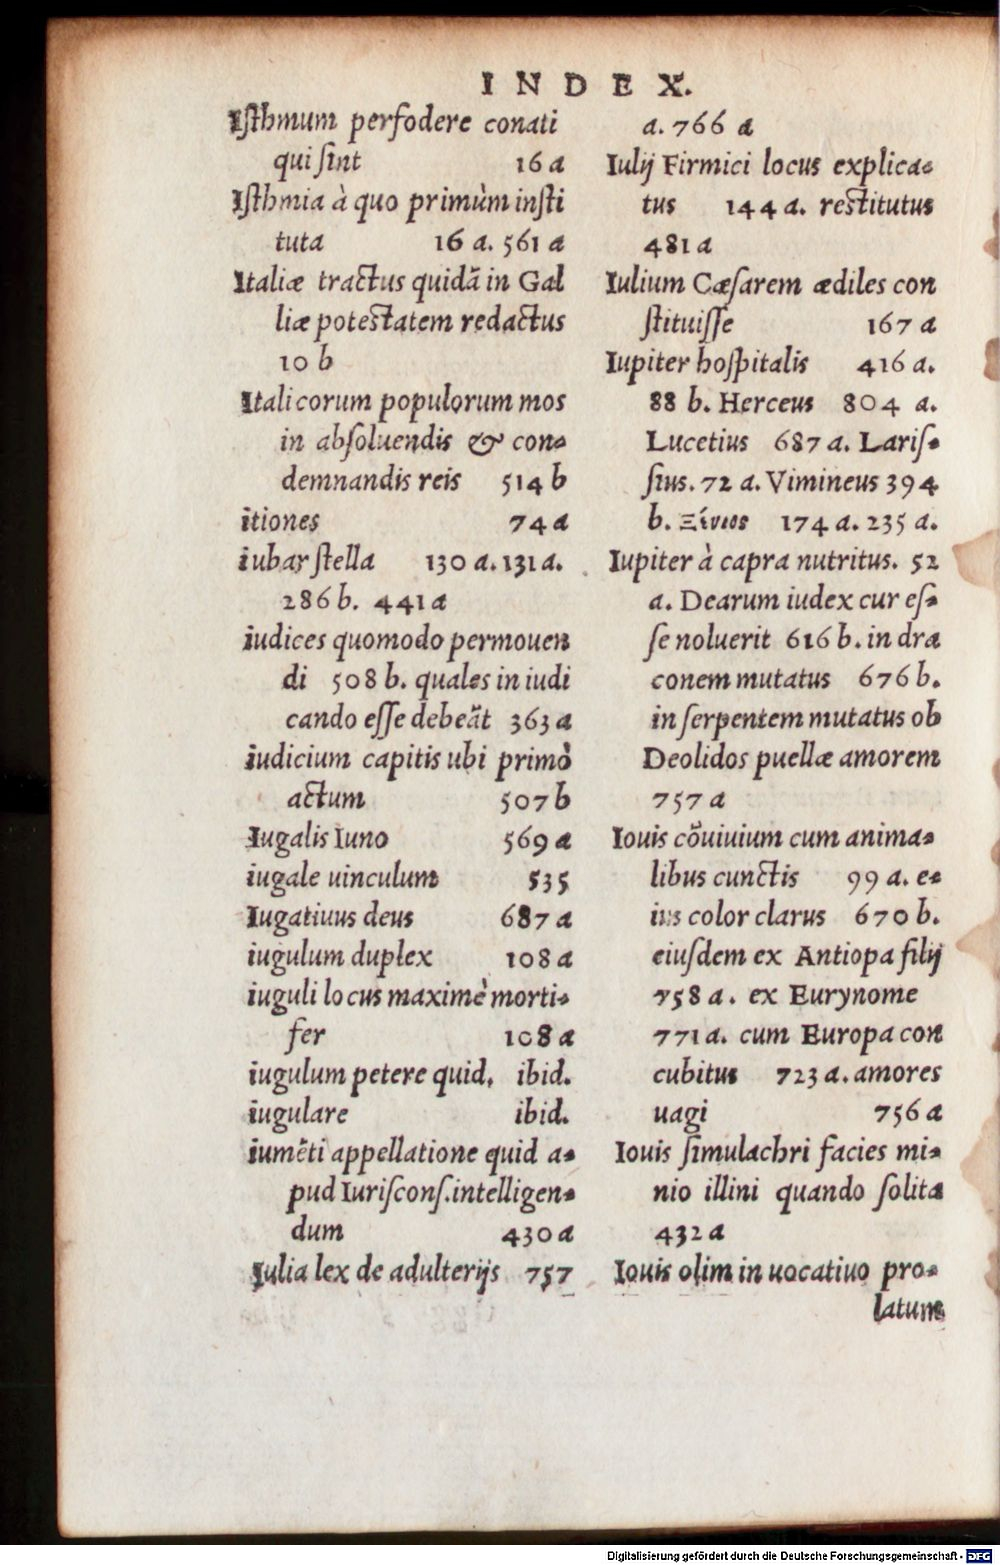 INDEX.
Iſthmum perfodere conati
qui ſint 16 a
Iſthmia à quo primùm inſti
tuta 16 a. 561 a
Italiæ tractus quidã in Gal
liæ poteſtatem redactus
10 b
Italicorum populorum mos
in abſoluendis & con-
demnandis reis 514 b
itiones 74 a
iubar ſtella 130 a. 131 a.
286 b. 441 a
iudices quomodo permouen
di 508 b. quales in iudi
cando eſſe debeãt 363 a
iudicium capitis ubi primò
actum 507 b
Iugalis Iuno 569 a
iugale uinculum 535
Iugatiuus deus 687 a
iugulum duplex 108 a
iuguli locus maximè morti-
fer 108 a
iugulum petere quid, ibid.
iugulare ibid.
iumẽti appellatione quid a-
pud Iuriſconſ. intelligen-
dum 430 a
Iulia lex de adulterijs 757
a. 766 a
Iulij Firmici locus explica-
tus 144 a. reſtitutus
481 a
Iulium Cæſarem ædiles con
ſtituiſſe 167 a
Iupiter hoſpitalis 416 a.
88 b. Herceus 804 a.
Lucetius 687 a. Lariſ-
ſius. 72 a. Vimineus 394
b. Ξένιος 174 a. 235 a.
Iupiter à capra nutritus. 52
a. Dearum iudex cur eſ-
ſe noluerit 616 b. in dra
conem mutatus 676 b.
in ſerpentem mutatus ob
Deolidos puellæ amorem
757 a
Iouis cõuiuium cum anima-
libus cunctis 99 a. e-
ius color clarus 670 b.
eiuſdem ex Antiopa filij
758 a. ex Eurynome
771 a. cum Europa con
cubitus 723 a. amores
uagi 756 a
Iouis ſimulachri facies mi-
nio illini quando ſolita
432 a
Iouis olim in uocatiuo pro-
latum
Digitalisierung gefördert durch die Deutsche Forschungsgemeinschaft - DFG